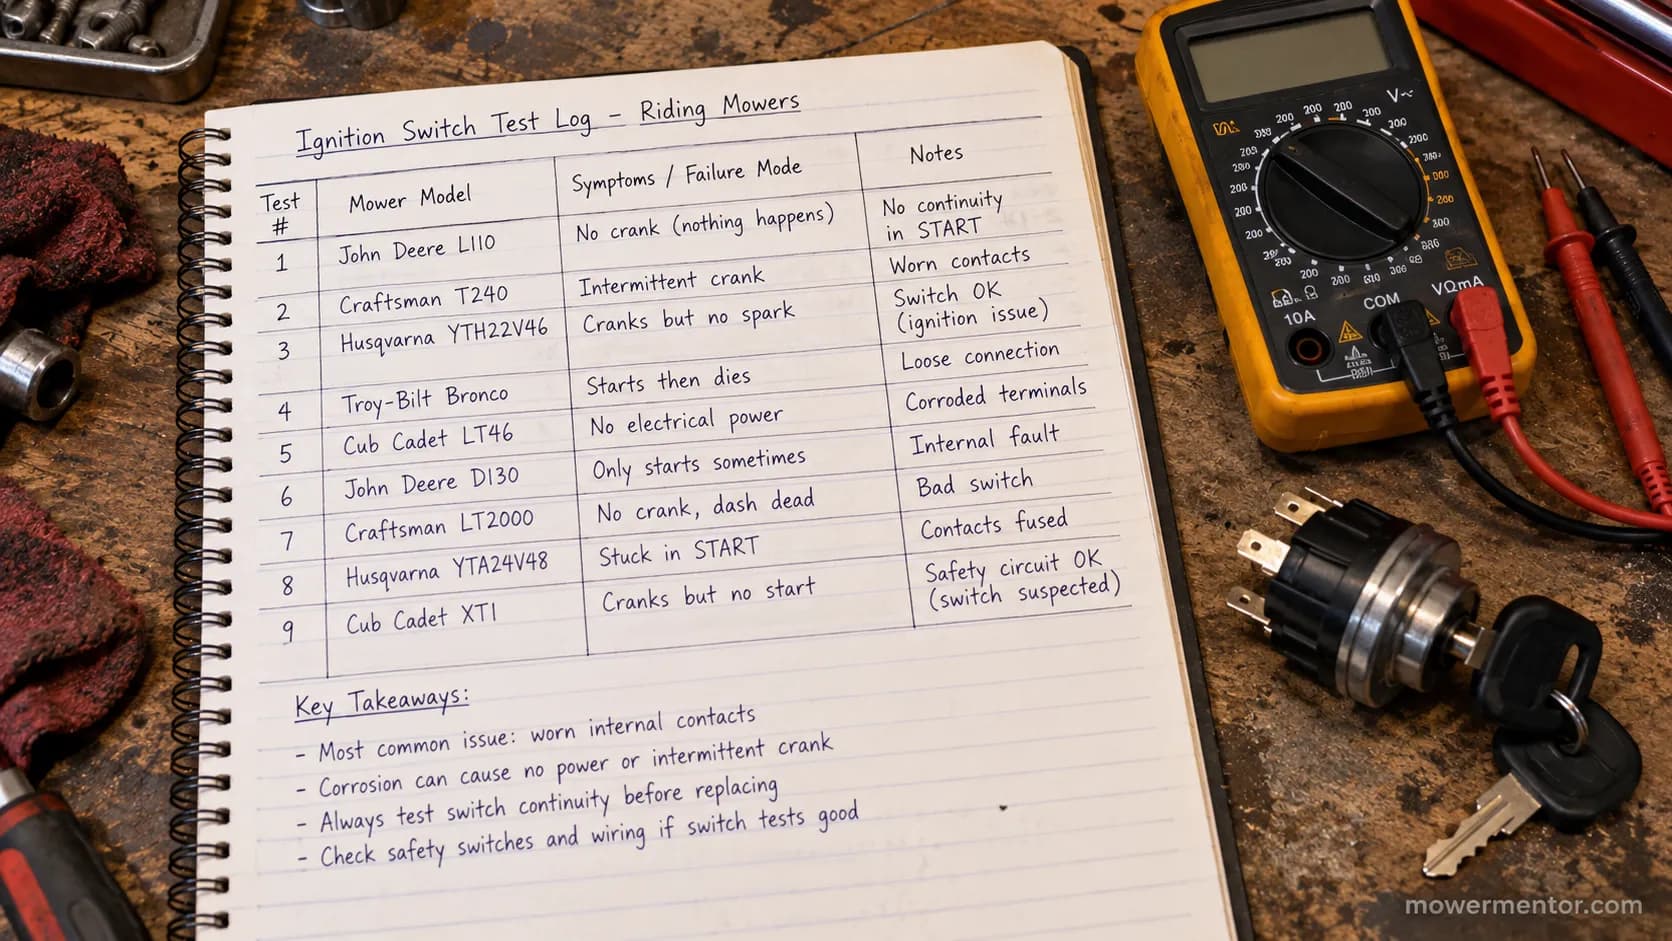 Ignition Switch Test Log – Riding Mowers
Test # Mower Model Symptoms / Failure Mode Notes
1 John Deere L110 No crank (nothing happens) No continuity in START
2 Craftsman T240 Intermittent crank Worn contacts
3 Husqvarna YTH22V46 Cranks but no spark Switch OK (ignition issue)
4 Troy-Bilt Bronco Starts then dies Loose connection
5 Cub Cadet LT46 No electrical power Corroded terminals
6 John Deere D130 Only starts sometimes Internal fault
7 Craftsman LT2000 No crank, dash dead Bad switch
8 Husqvarna YTA24V48 Stuck in START Contacts fused
9 Cub Cadet XT1 Cranks but no start Safety circuit OK (switch suspected)
Key Takeaways:
- Most common issue: worn internal contacts
- Corrosion can cause no power or intermittent crank
- Always test switch continuity before replacing
- Check safety switches and wiring if switch tests good
V~
10A COM VΩmA
mowermentor.com